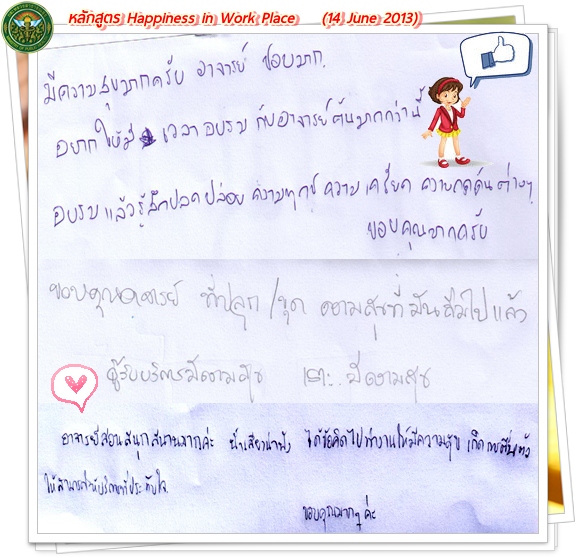 หลักสูตร Happiness in Work Place (14 June 2013)
มีความสุขมากครับ อาจารย์ ชอบมาก.
อยากให้มี เวลาอบรม กับอาจารย์ มากกว่านี้
อบรมแล้วรู้สึกปลดปล่อย ความทุกข์ ความเครียด ความกดดันต่างๆ
ขอบคุณมากครับ
ขอบคุณอาจารย์ ที่ปลุก / ขุด ความสุขที่มันลืมไปแล้ว
ผู้รับบริการมีความสุข เรา.. มีความสุข
อาจารย์สอนสนุกสนานมากค่ะ น้ำเสียงน่าฟัง ได้ข้อคิดไปทำงานให้มีความสุข เกิด
ขอบคุณมากๆ ค่ะ